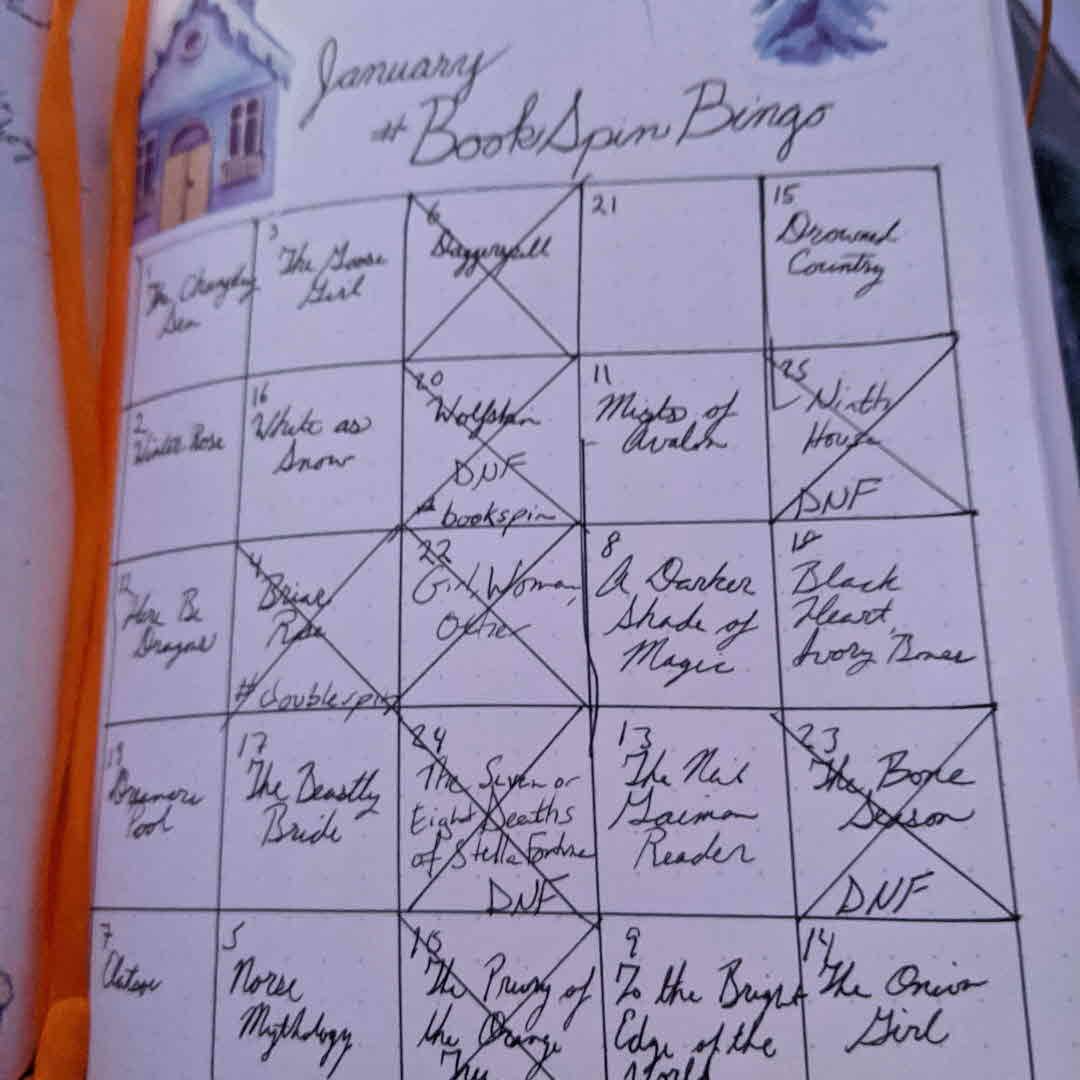 January
# BookSpin Bingo
1
The Changeling
Sea
3
The Goose
Girl
6
Daggerspell
21
15
Drowned
Country
2
Winter Rose
16
White as
Snow
20
Wolfskin
DNF
# bookspin
11
Mists of
Avalon
25
Ninth
House
DNF
12
Here Be
Dragons
4
Briar
Rose
# doublespin
22
Girl, Woman,
Other
8
A Darker
Shade of
Magic
18
Black
Heart,
Ivory Bones
19
Dreamers
Pool
17
The Beastly
Bride
24
The Seven or
Eight Deaths
of Stella Fortuna
DNF
13
The Neil
Gaiman
Reader
23
The Bone
Season
DNF
7
5
Norse
Mythology
10
The Priory of
the Orange
9
To the Bright
Edge of the
World
14
The Onion
Girl